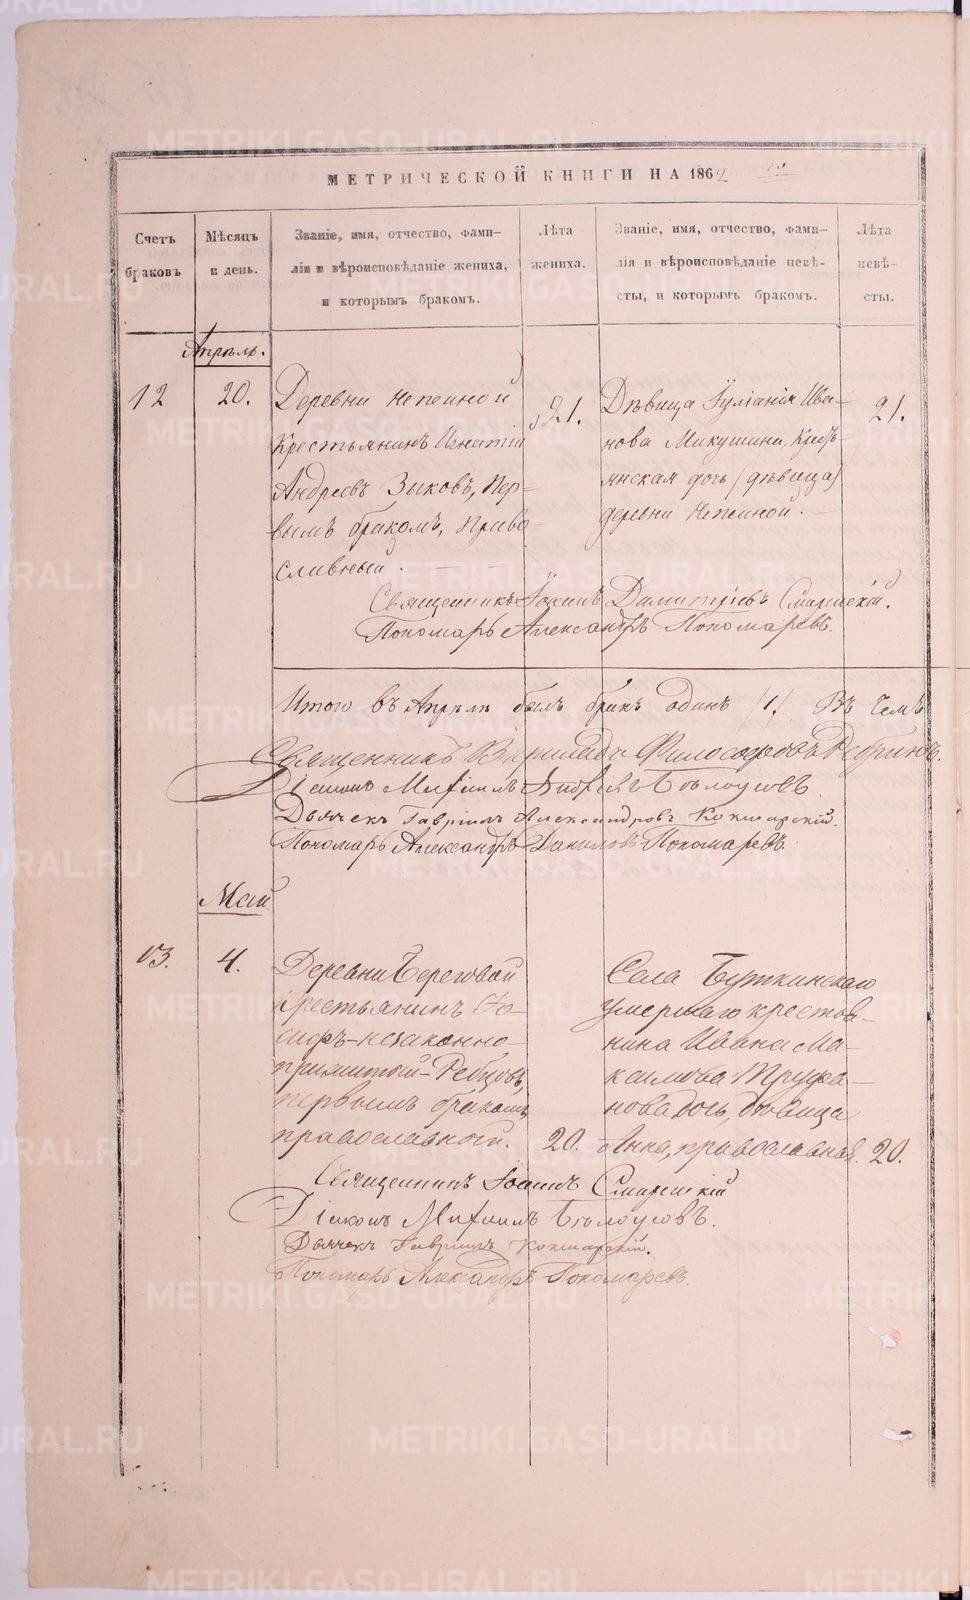 МЕТРИЧЕСКОЙ КНИГИ НА 1862
Счетъ браковъ
Мѣсяцъ и день.
Званіе, имя, отчество, фами-
лія и вѣроисповѣданіе жениха,
и которымъ бракомъ.
Лѣта жениха.
Званіе, имя, отчество, фами-
лія и вѣроисповѣданіе невѣ-
сты, и которымъ бракомъ.
Лѣта невѣ-
сты.
Апрѣль.
12
20.
Деревни Непеиной
Крестьянинъ Игнатій
Андреевъ Зыковъ, пер-
вымъ бракомъ, право-
славный.
21.
Дѣвица Іуліанія Ива-
нова Микушина, Кресть-
янская дочь (дѣвица)
деревни Непеиной.
21.
Священникъ Іоаннъ Димитріевъ Смарискій.
Пономарь Александръ Пономаревъ.
Итого въ Апрѣлѣ былъ бракъ одинъ (1) Въ чемъ
Священникъ Философовъ
Діаконъ Михаилъ Андреевъ Бѣлоусовъ.
Дьячекъ Гавріилъ Александровъ Кокшарскій.
Пономарь Александръ Даниловъ Пономаревъ.
Май.
13.
4.
Деревни Береговой
Крестьянинъ Іо-
сифъ-незаконно-
прижитый-Ребцовъ,
первымъ бракомъ,
православный.
20.
Села Буткинскаго
умершаго крестья-
нина Ивана Ма-
ксимова Труха-
нова дочь, дѣвица
Анна, православная.
20.
Священникъ Іоаннъ Смарискій
Діаконъ Михаилъ Бѣлоусовъ.
Дьячекъ Гавріилъ Кокшарскій.
Пономарь Александръ Пономаревъ.
METRIKI.GASO-URAL.RU